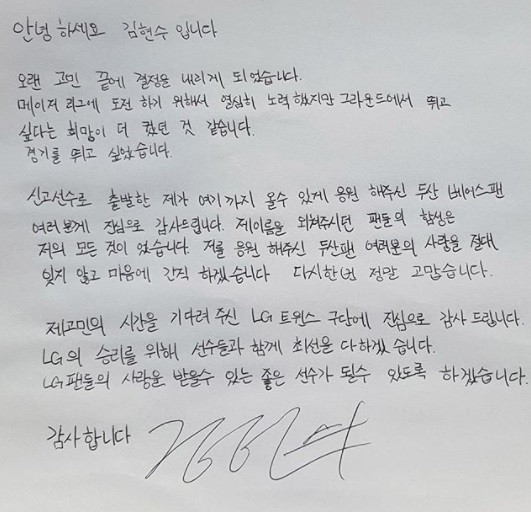 안녕 하세요 김현수 입니다
오랜 고민 끝에 결정을 내리게 되었습니다.
메이저 리그에 도전 하기 위해서 열심히 노력 했지만 그라운드에서 뛰고
싶다는 희망이 더 컸던 것 같습니다.
경기를 뛰고 싶었습니다.
신고선수로 출발한 제가 여기까지 올수 있게 응원 해주신 두산 베어스팬
여러분께 진심으로 감사드립니다. 제이름을 외쳐주시던 팬들의 함성은
저의 모든 것이 었습니다. 저를 응원 해주신 두산팬 여러분의 사랑을 절대
잊지 않고 마음에 간직 하겠습니다 다시한번 정말 고맙습니다.
제고민의 시간을 기다려 주신 LG 트윈스 구단에 진심으로 감사 드립니다.
LG의 승리를 위해 선수들과 함께 최선을 다하겠 습니다.
LG팬들의 사랑을 받을수 있는 좋은 선수가 될수 있도록 하겠습니다.
감사합니다